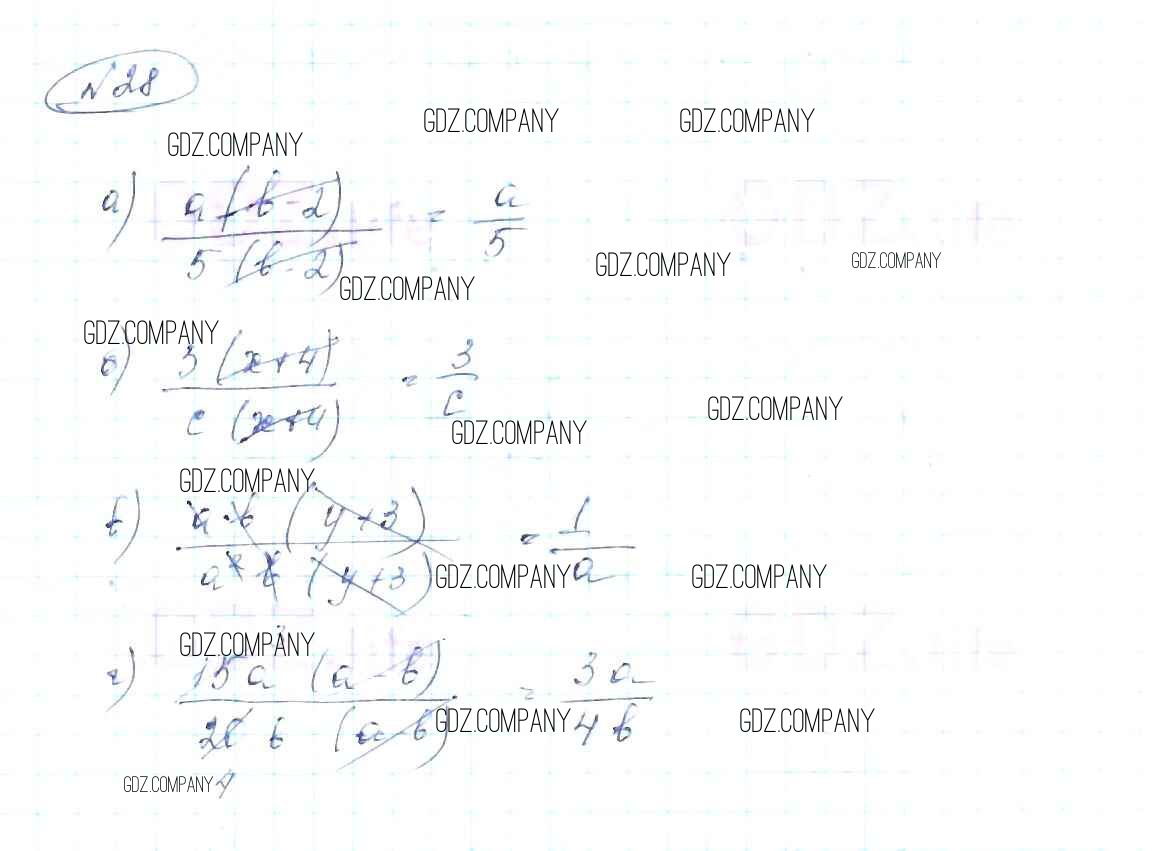 №28
GDZ.COMPANY GDZ.COMPANY
GDZ.COMPANY
а) a(b-2) / 5(b-2) = a / 5
GDZ.COMPANY GDZ.COMPANY
GDZ.COMPANY
GDZ.COMPANY
б) 3(x+4) / c(x+4) = 3 / c
GDZ.COMPANY
GDZ.COMPANY
GDZ.COMPANY
в) a·b(y+3) / a²b(y+3) = 1 / a
GDZ.COMPANY GDZ.COMPANY
GDZ.COMPANY
3
г) 15a(a-b) / 20b(a-b) = 3a / 4b
GDZ.COMPANY GDZ.COMPANY
GDZ.COMPANY 4